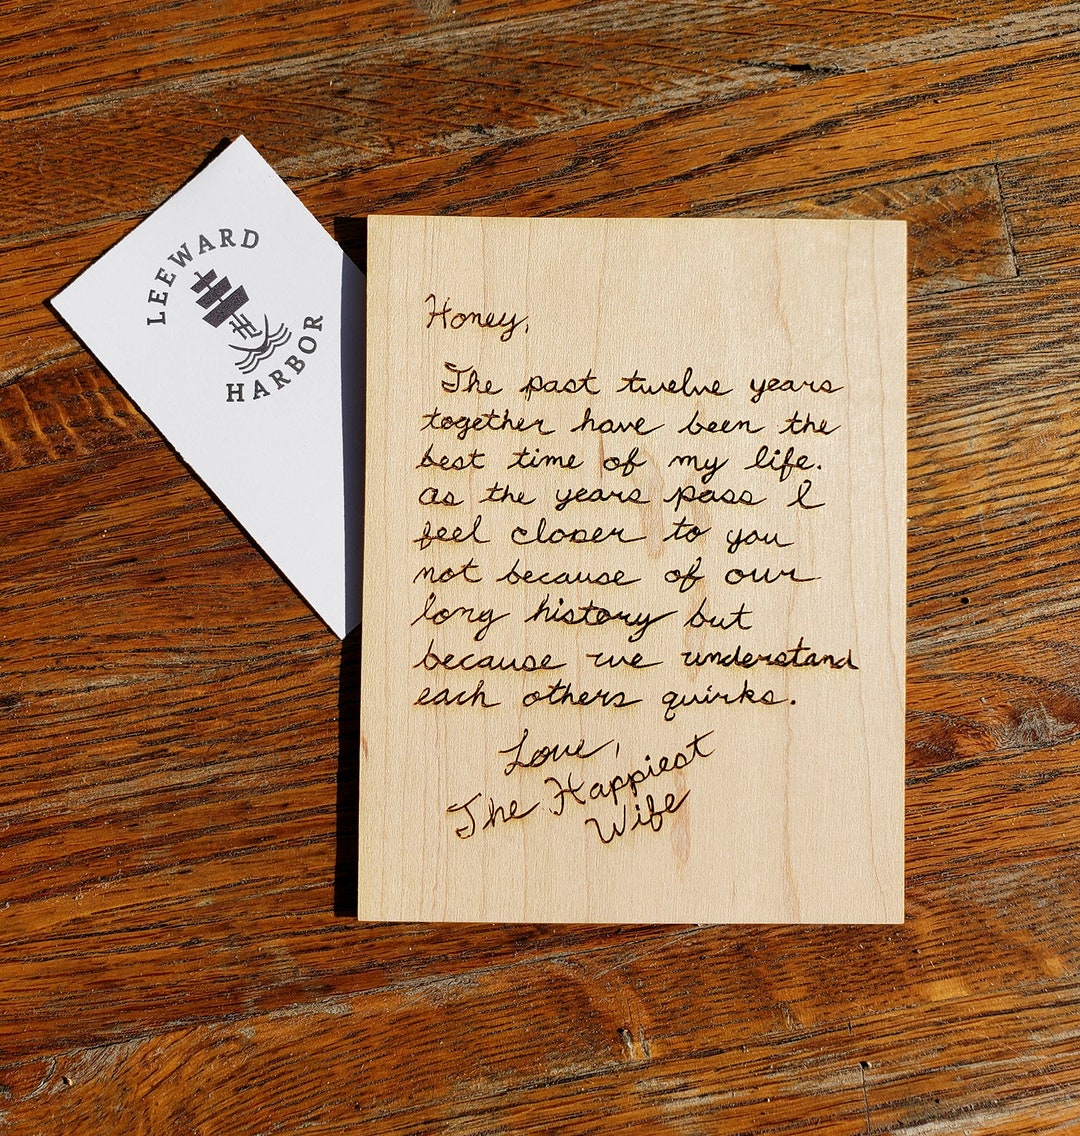 LEEWARD
HARBOR
Honey,
The past twelve years
together have been the
best time of my life.
As the years pass I
feel closer to you
not because of our
long history but
because we understand
each others quirks.
Love,
The Happiest
Wife